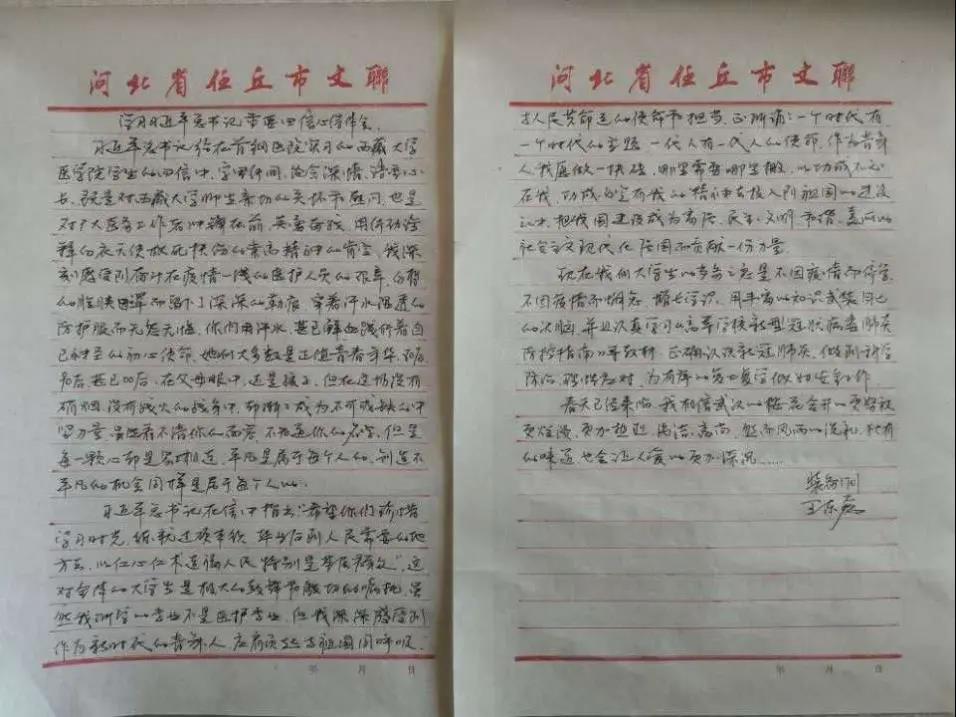 河北省任丘市文联
学习习近平总书记重要回信心得体会
习近平总书记给在首钢医院实习的西藏大学
医学院学生的回信中，字里行间，饱含深情，语重心
长，既是对西藏大学师生亲切的关怀和慰问，也是
对广大医务工作者冲锋在前、英勇奋战，用行动诠
释白衣天使救死扶伤的崇高精神的肯定。我深
刻感受到奋斗在疫情一线的医护人员的艰辛，白皙
的脸
罩而留下了深深的勒痕，穿着汗水湿透的
防护服而无怨无悔，你们用汗水、甚至鲜血践行着自
己神圣的初心使命，她们大多数是正值青春年华，80后、
90后、甚至00后，在父母眼中，还是孩子，但在这场没有
硝烟、没有战火的战争中，却渐渐成为不可或缺的中
坚力量，虽然看不清你们的面容，不知道你的名字，但是
每一颗心却是紧紧相连，平凡是属于每个人的，创造不
平凡的机会同样是属于每个人的。
习近平总书记在信中指出“希望你们珍惜
学习时光，练就过硬本领，毕业后到人民需要的地
方去，以仁心仁术造福人民特别是基层群众”，这
对全体的大学生是极大的鼓舞和
，虽
然我所学的专业不是医护专业，但我深深感受到
作为新时代的青年人，应肩负起与祖国同呼吸、
河北省任丘市文联
与人民共命运的使命和担当，正所谓：一个时代有
一个时代的主题，一代人有一代人的使命，作为青年
人，我愿做一块砖，哪里需要哪里搬，以功成不必
在我，功成必定有我的精神去投入到祖国的建设
中，把我国建设成为富强、民主、文明、和谐、美丽的
社会主义现代化强国而贡献一份力量。
现在我们大学生的
是不因疫情而停学，
不因疫情而懈怠，增长学识，用丰富的知识武装自己
的头脑，并且认真学习《高等学校新型冠状病毒肺炎
防控指南》等教材，正确认识新冠肺炎，做到科学
防治，
应对，为有序的复工复学做好安全工作。
春天已经来临，我相信武汉的樱花会开的更
更烂漫，更加热烈、高洁、高尚，
风雨的洗礼，
的味道也会沁人
的更加深沉……
年 月 日
年 月 日